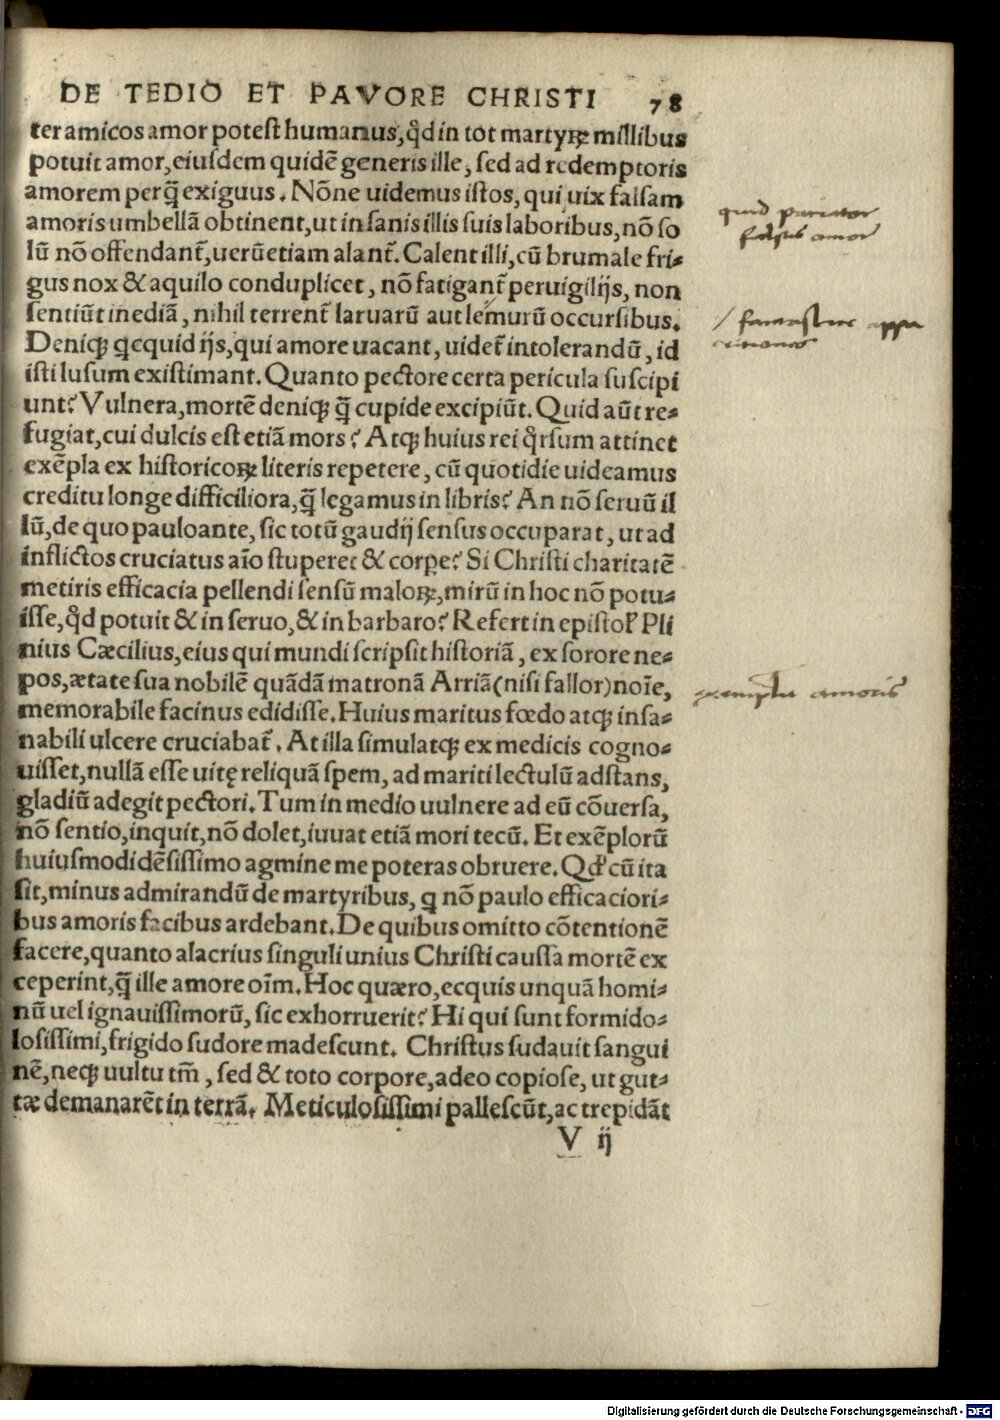 DE TEDIO ET PAVORE CHRISTI 78
ter amicos amor potest humanus, qđ in tot martyꝝ millibus
potuit amor, eiusdem quidē generis ille, sed ad redemptoris
amorem perq̃ exiguus. Nōne uidemus istos, qui uix falsam
amoris umbellā obtinent, ut insanis illis suis laboribus, nō so
lū nō offendant᷑, uerūetiam alant᷑. Calent illi, cū brumale fri-
gus nox & aquilo conduplicet, nō fatigant᷑ peruigilijs, non
sentiūt inediā, nihil terrent᷑ laruarū aut lemurū occursibus.
Deniqꝫ q̨cquid ijs, qui amore uacant, uidet᷑ intolerandū, id
isti lusum existimant. Quanto pectore certa pericula suscipi
unt? Vulnera, mortē deniqꝫ q̃ cupide excipiūt. Quid aūt re-
fugiat, cui dulcis est etiā mors? Atqꝫ huius rei qͬrsum attinet
exēpla ex historicoꝝ literis repetere, cū quotidie uideamus
creditu longe difficiliora, q̃ legamus in libris? An nō seruū il
lū, de quo pauloante, sic totū gaudij sensus occuparat, ut ad
inflictos cruciatus aīo stuperet & corꝑe? Si Christi charitatē
metiris efficacia pellendi sensū maloꝝ, mirū in hoc nō potu-
isse, qđ potuit & in seruo, & in barbaro? Refert in epistol᷑ Pli
nius Cæcilius, eius qui mundi scripsit historiā, ex sorore ne-
pos, ætate sua nobilē quādā matronā Arriā (nisi fallor) noīe,
memorabile facinus edidisse. Huius maritus fœdo atqꝫ insa-
nabili ulcere cruciabat᷑. At illa simulatqꝫ ex medicis cogno-
uisset, nullā esse uitę reliquā spem, ad mariti lectulū adstans,
gladiū adegit pectori. Tum in medio uulnere ad eū cōuersa,
nō sentio, inquit, nō dolet, iuuat etiā mori tecū. Et exēplorū
huiusmodi dēsissimo agmine me poteras obruere. Qđ cū ita
sit, minus admirandū de martyribus, q̨ nō paulo efficaciori-
bus amoris facibus ardebant. De quibus omitto cōtentionē
facere, quanto alacrius singuli unius Christi caussa mortē ex
ceperint, q̃ ille amore oīm. Hoc quæro, ecquis unquā homi-
nū uel ignauissimorū, sic exhorruerit? Hi qui sunt formido-
losissimi, frigido sudore madescunt. Christus sudauit sangui
nē, neqꝫ uultu tm̄, sed & toto corpore, adeo copiose, ut gut-
tæ demanarēt in terrā. Meticulosissimi pallescūt, ac trepidāt
V ij
quid pariator
falsus amor
exempla amoris
Digitalisierung gefördert durch die Deutsche Forschungsgemeinschaft - DFG